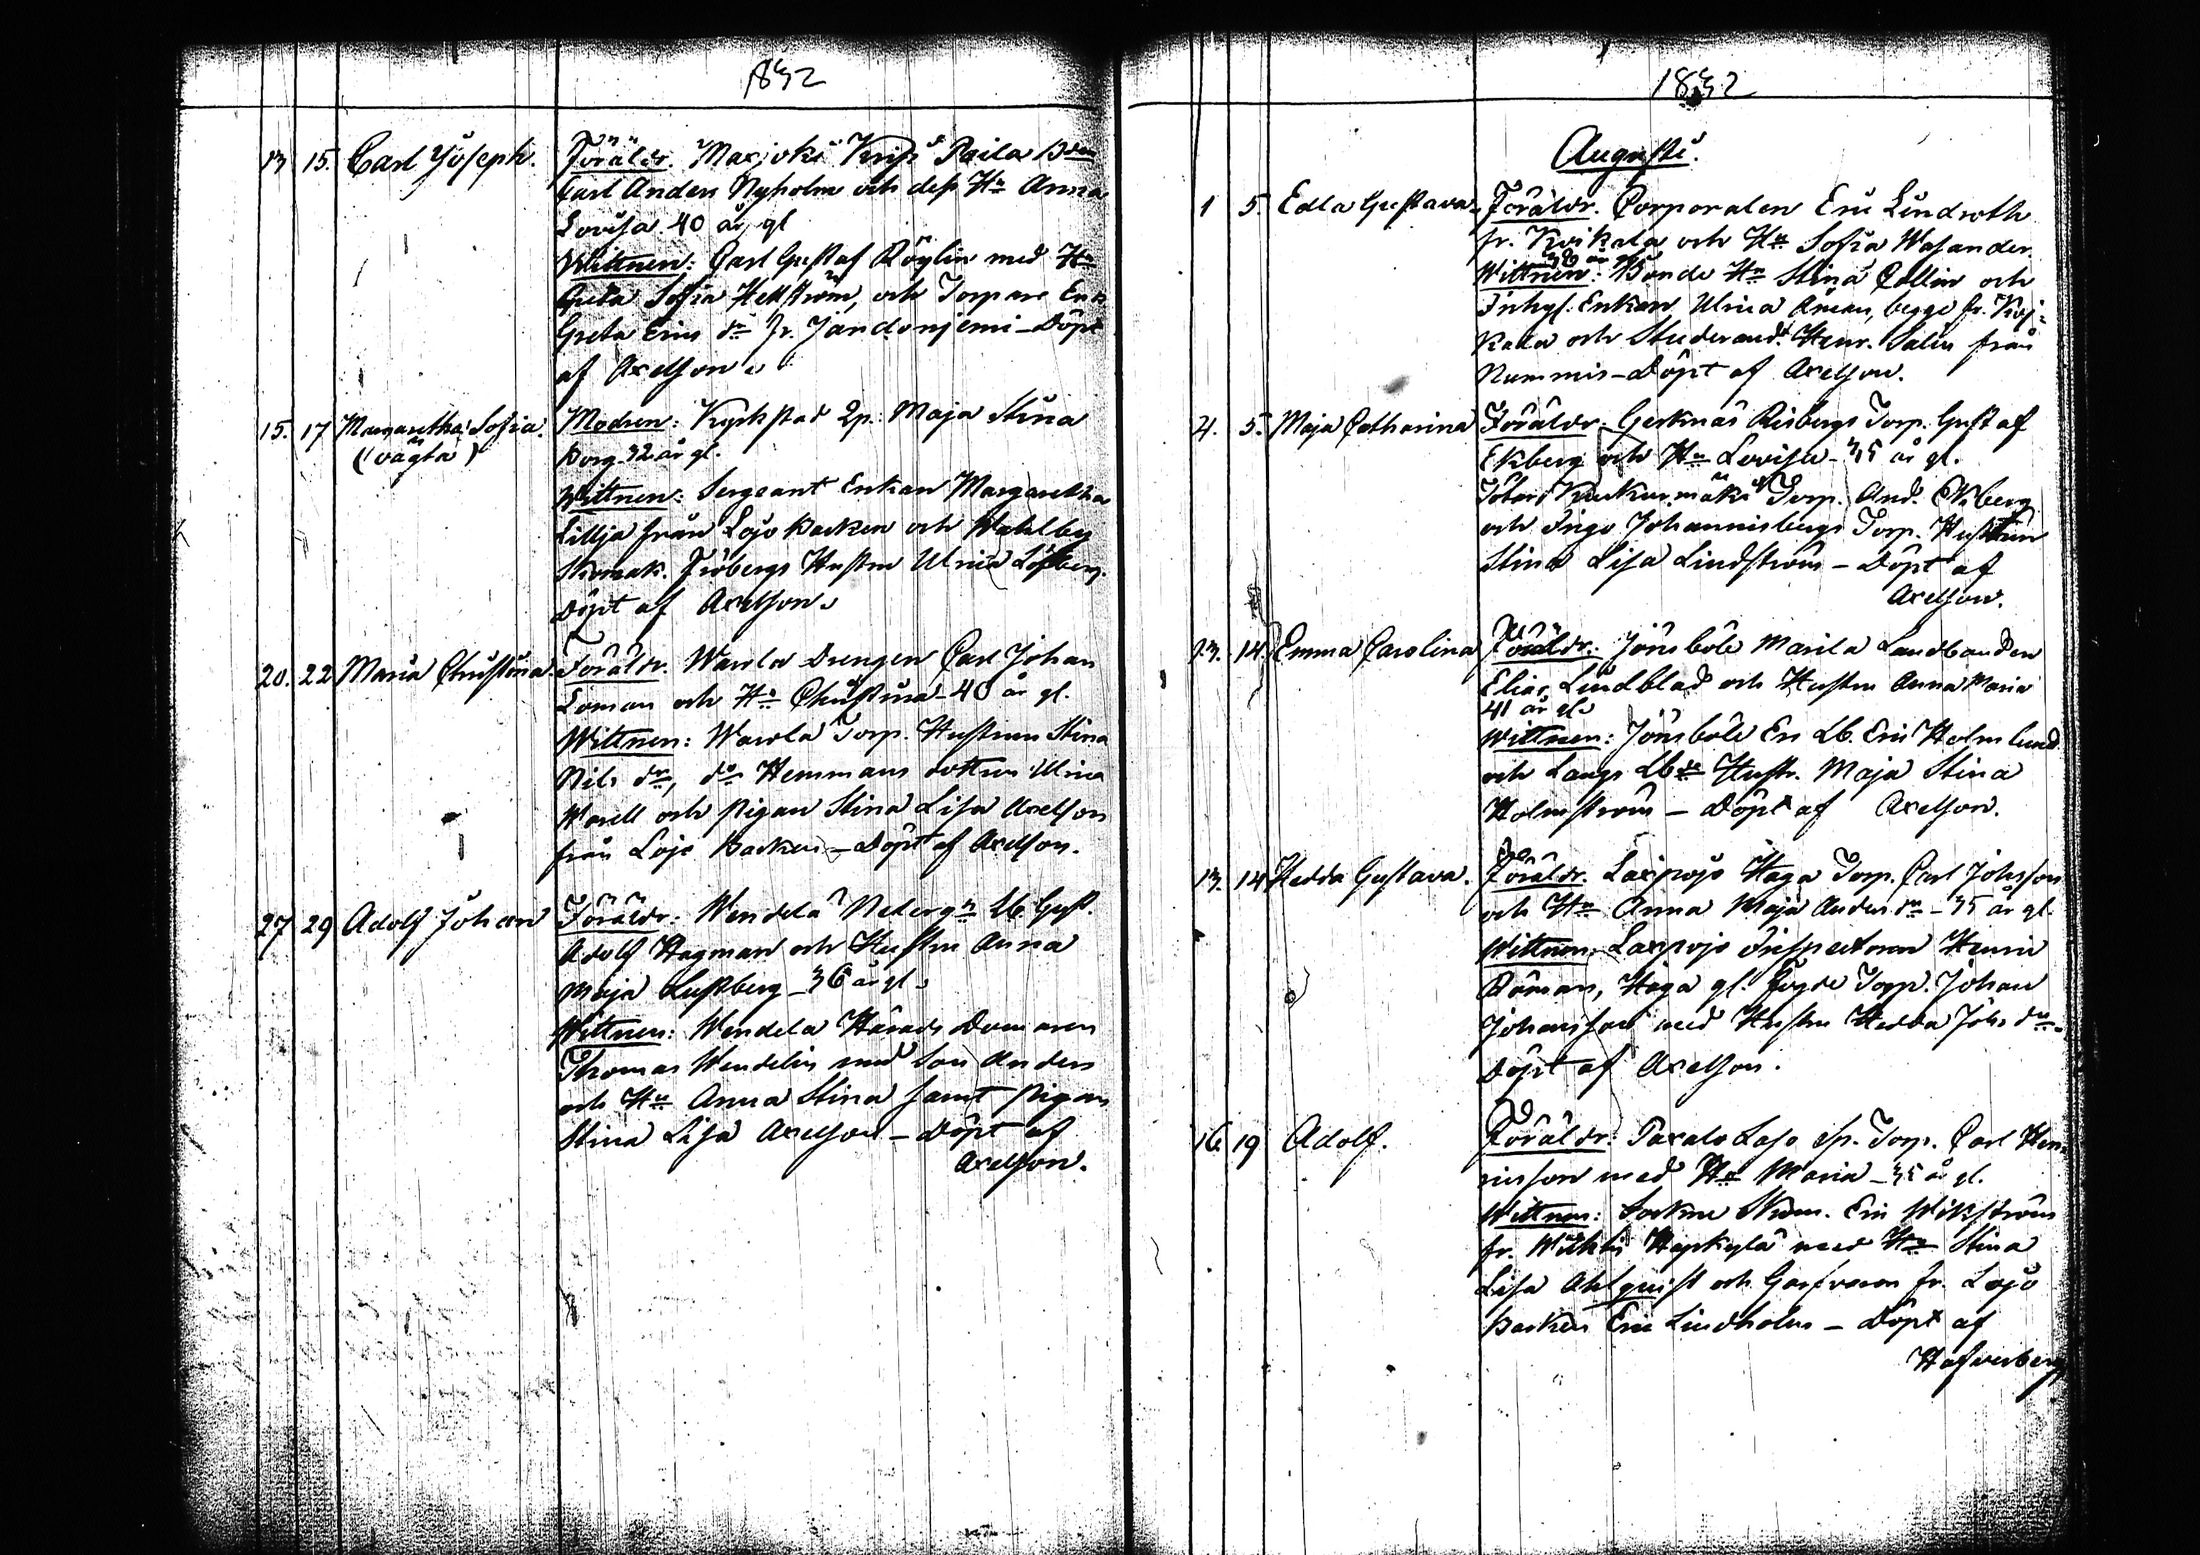 1832
13 15. Carl Joseph. Föräldr. Marjoki Knips Paila Bdn
Carl Anders Nyholm och dess Hu Anna
Lovisa 40 år gl
Wittnen: Carl Gustaf Röglin med Hu
Greta Sofia Hellström, och Torpare Enk
Greta Erics dr fr. Jandonjemi - Döpt
af Axelson.
15. 17 Margaretha Sofia. Modren: Kyrkstad Qp. Maja Stina
(oägta) Borg 32 år gl.
Wittnen: Sergeant Enkan Margaretha
Lillja från Lojo Backen och Wahlby
Skomak. Fröbergs Hustru Ulrica Löfberg.
Döpt af Axelson.
20. 22 Maria Christina. Föräldr. Warola Drengen Carl Johan
Loman och Hu Christina - 40 år gl.
Wittnen: Warola Torp. Hustrun Stina
Nils dr, do Hemmans dottren Ulrica
Warell och Pigan Stina Lisa Axelson
från Lojo Backen - Döpt af Axelson.
27 29 Adolf Johan Föräldr: Wendelä Nedergn Lb. Gust.
Adolf Hagman och Hustru Anna
Maja Lustberg - 36 år gl.
Wittnen: Wendela Härads Domaren
Thomas Wendelin med Son Anders
och Hu Anna Stina samt Pigan
Stina Lisa Axelson - Döpt af
Axelson.
1832
Augusti.
1 5. Edla Gustava. Föräldr. Corporalen Eric Lindroth
fr. Koikala och Hu Sofia Wasander
39 år
Wittnen: Bonde Hu Stina Collin och
Inhys. Enkan Ulrica Åman, begge fr. Koi-
kala och Studerand. Henr. Salin från
Nummis - Döpt af Axelson.
4. 5. Maja Catharina Föräldr: Gerknäs Risbergs Torp. Gustaf
Ekberg och Hu Lovisa - 35 år gl.
Kuckurmäki Torp. And. Ekberg
och Ingo Johannisbergs Torp. Hustrun
Stina Lisa Lindström - Döpt af
Axelson.
13. 14. Emma Carolina Föräldr: Jönsböle Marila Landbonden
Elias Lindblad och Hustru Anna Maria
41 år gl.
Wittnen: Jönsböle Ers Lb. Eric Holmlund
och Lb Hustr. Maja Stina
Holmström - Döpt af Axelson.
13. 14 Hedda Gustava. Föräldr. Laxpojo Haga Torp. Carl Johsson
och Hu Anna Maja Anders dr - 35 år gl.
Wittnen: Laxpojo Inspectoren Henric
Böman, Haga gl. Fogde Torp. Johan
Johansson med Hustru Hedda Johs dr.
Döpt af Axelson.
16 19 Adolf. Föräldr: Paxalo Laso Sp. Torp. Carl Hen-
ricsson med Hu Maria - 35 år gl.
Wittnen: Sockne Skom. Eric Wikström
fr. Wichtis Hapkylä med Hu Stina
Lisa Ahlquist och Garfvaren fr. Lojo
Backen Eric Lindholm - Döpt af
Hafverberg